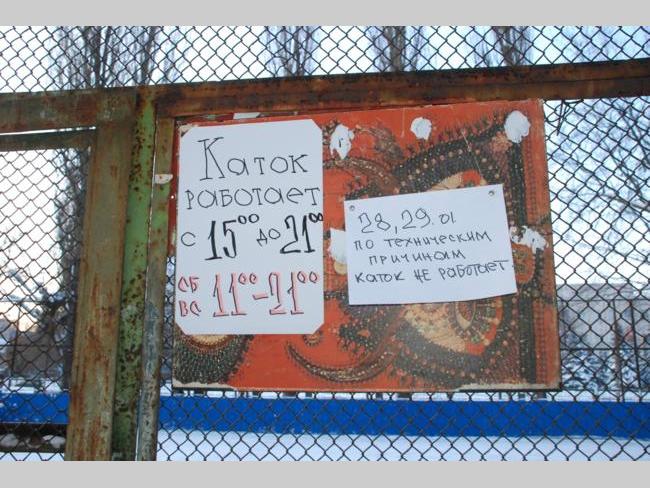 Каток
работает
с 15⁰⁰ до 21⁰⁰
СБ
ВС 11⁰⁰-21⁰⁰
28, 29.01
по техническим
причинам
каток не работает.